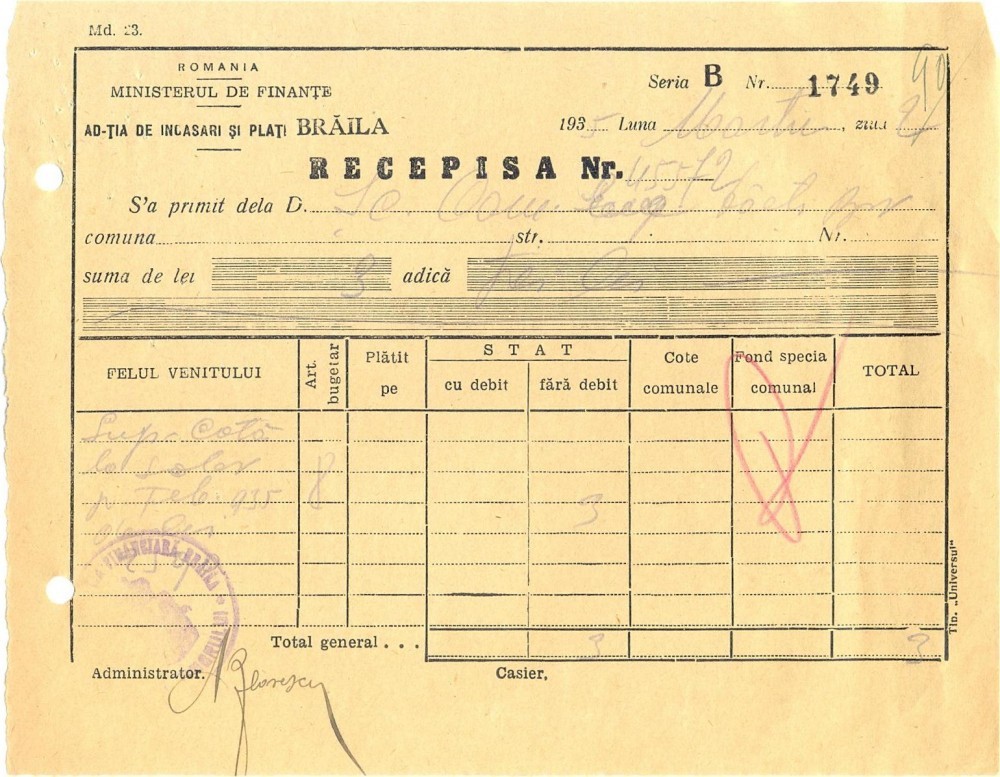 Md. 23.
90
ROMANIA
MINISTERUL DE FINANȚE
AD-ȚIA DE INCASARI ȘI PLATI BRĂILA
Seria B Nr. 1749
1935 Luna Martie, ziua 21
RECEPISA Nr. 45572
S'a primit dela D. Sc. Com.
comuna str. Nr.
suma de lei 3 adică trei lei
FELUL VENITULUI Art. bugetar Plătit pe STAT cu debit fără debit Cote comunale Fond specia comunal TOTAL
Sup. Cotă
la salar
p. Feb. 935 8 3
FINANCIARĂ BRĂILA
Total general . . . 3 3
Administrator. Casier,
Tip. „Universul"